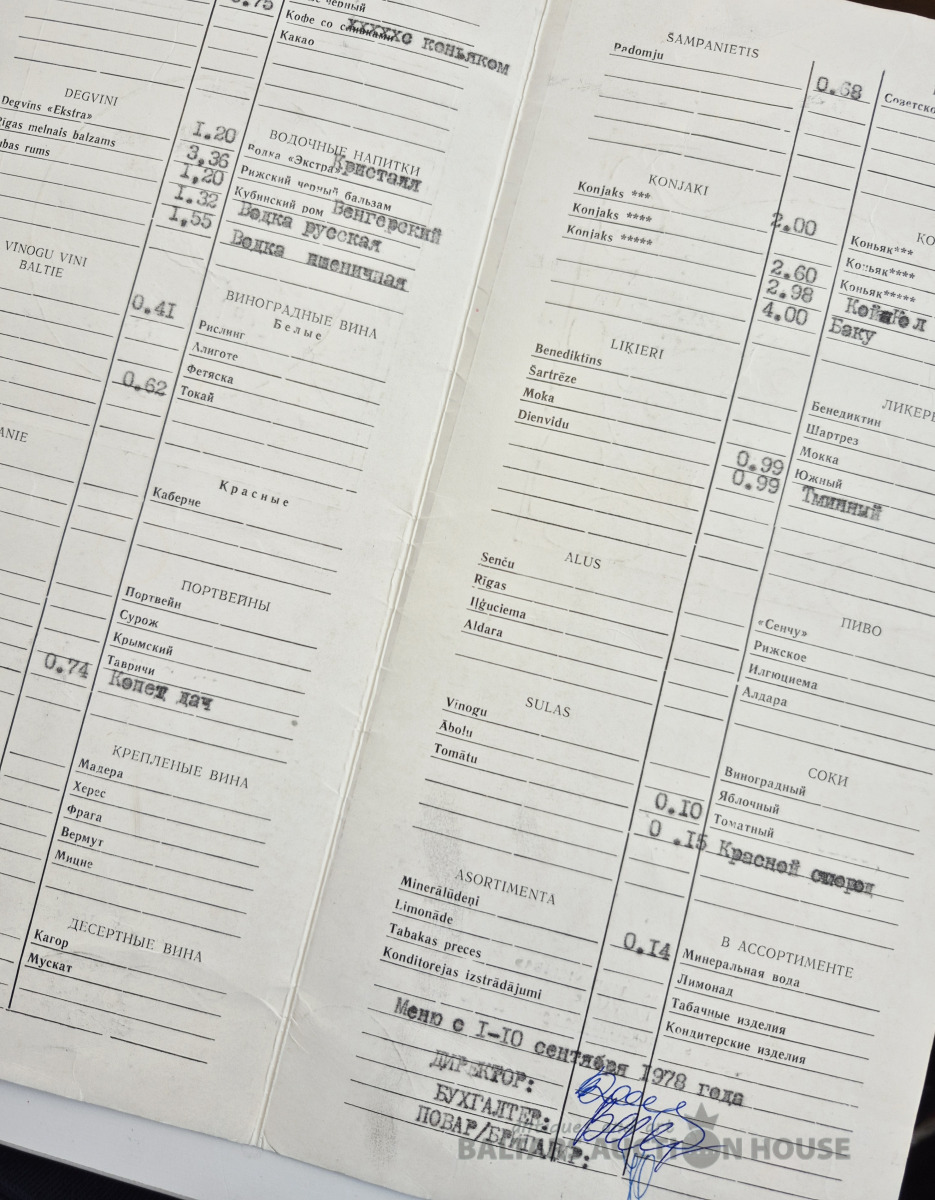 0.75
черный
Кофе со сливками ХХХХХс коньяком
Какао
DEGVINI
Degvins «Ekstra»
Rīgas melnais balzams
Kubas rums
1.20
3.36
1.20
1.32
1.55
ВОДОЧНЫЕ НАПИТКИ
Водка «Экстра» Кристалл
Рижский черный бальзам
Кубинский ром Венгерский
Водка русская
Водка пшеничная
VĪNOGU VĪNI
BALTIE
0.41
0.62
ВИНОГРАДНЫЕ ВИНА
Белые
Рислинг
Алиготе
Фетяска
Токай
Красные
Каберне
ПОРТВЕЙНЫ
Портвейн
Сурож
Крымский
Тавричи
0.74
Копет дач
КРЕПЛЕНЫЕ ВИНА
Мадера
Херес
Фрага
Вермут
Мицне
ДЕСЕРТНЫЕ ВИНА
Кагор
Мускат
ŠAMPANIETIS
Padomju
0.68
Советско
KONJAKI
Konjaks ***
Konjaks ****
Konjaks *****
2.00
2.60
2.98
4.00
КО
Коньяк***
Коньяк****
Коньяк*****
Баку
LIĶIERI
Benediktins
Šartrēze
Moka
Dienvidu
0.99
0.99
ЛИКЕР
Бенедиктин
Шартрез
Мокка
Южный
Тминный
ALUS
Senču
Rīgas
Iļģuciema
Aldara
ПИВО
«Сенчу»
Рижское
Илгюциема
Алдара
SULAS
Vīnogu
Ābolu
Tomātu
0.10
0.15
СОКИ
Виноградный
Яблочный
Томатный
Красной смород
ASORTIMENTA
Minerālūdeņi
Limonāde
Tabakas preces
Konditorejas izstrādājumi
0.14
В АССОРТИМЕНТЕ
Минеральная вода
Лимонад
Табачные изделия
Кондитерские изделия
Меню с 1-10 сентября 1978 года
ДИРЕКТОР:
БУХГАЛТЕР:
ПОВАР/БРИГАДИР:
AUCTION HOUSE